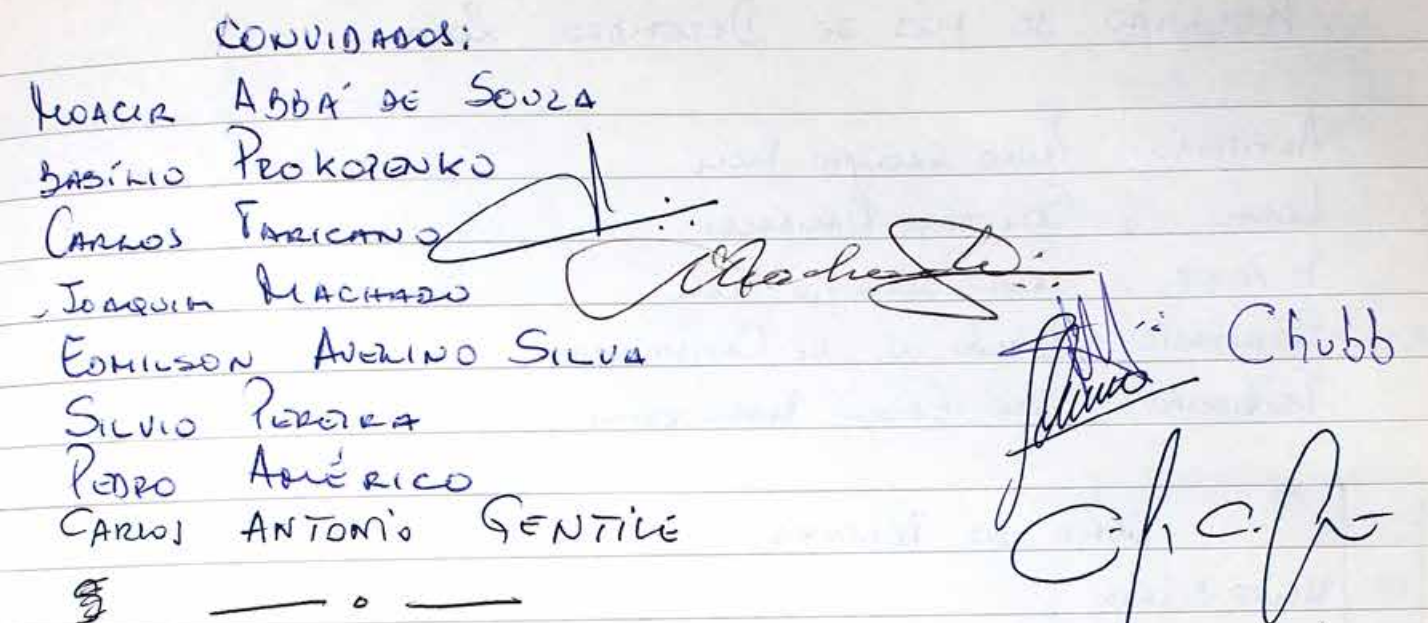 CONVIDADOS:
MOACIR ABBÁ DE SOUZA
BASÍLIO PROKOPENKO
CARLOS TARICANO
JOAQUIM MACHADO
EDMILSON AVELINO SILVA Chubb
SILVIO PEREIRA
PEDRO AMÉRICO
CARLOS ANTONIO GENTILE